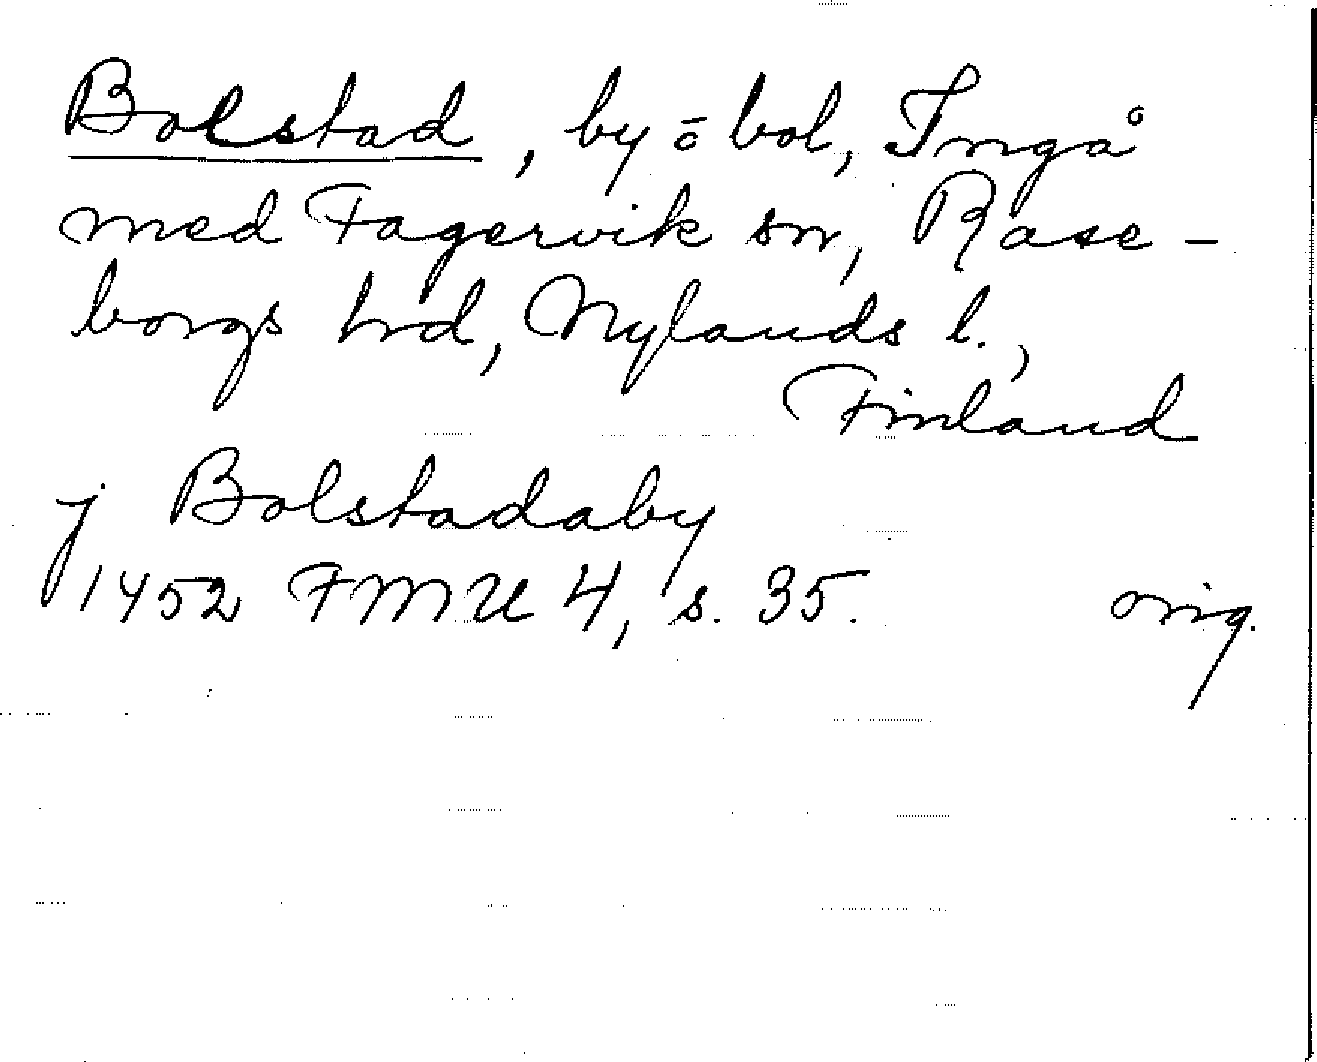 Bolstad, by o bol, Ingå
med Fagervik sn, Rase-
borgs hrd, Nylands l.,
Finland
j Bolstadaby
1452 FMU 4, s. 35. orig.